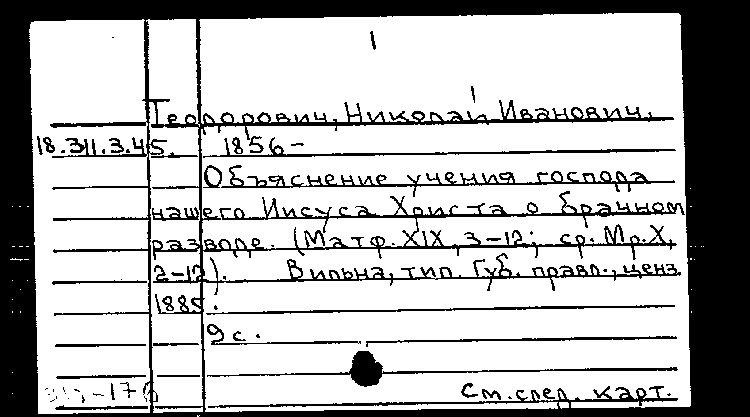 1
Теодорович, Николай Иванович,
18.311.3.45. 1856-
Объяснение учения господа
нашего Иисуса Христа о брачном
разводе. (Матф. XIX, 3-12; ср. Мр. X,
2-12). Вильна, тип. Губ. правл., ценз.
1885.
9 с.
-176 См. след. карт.